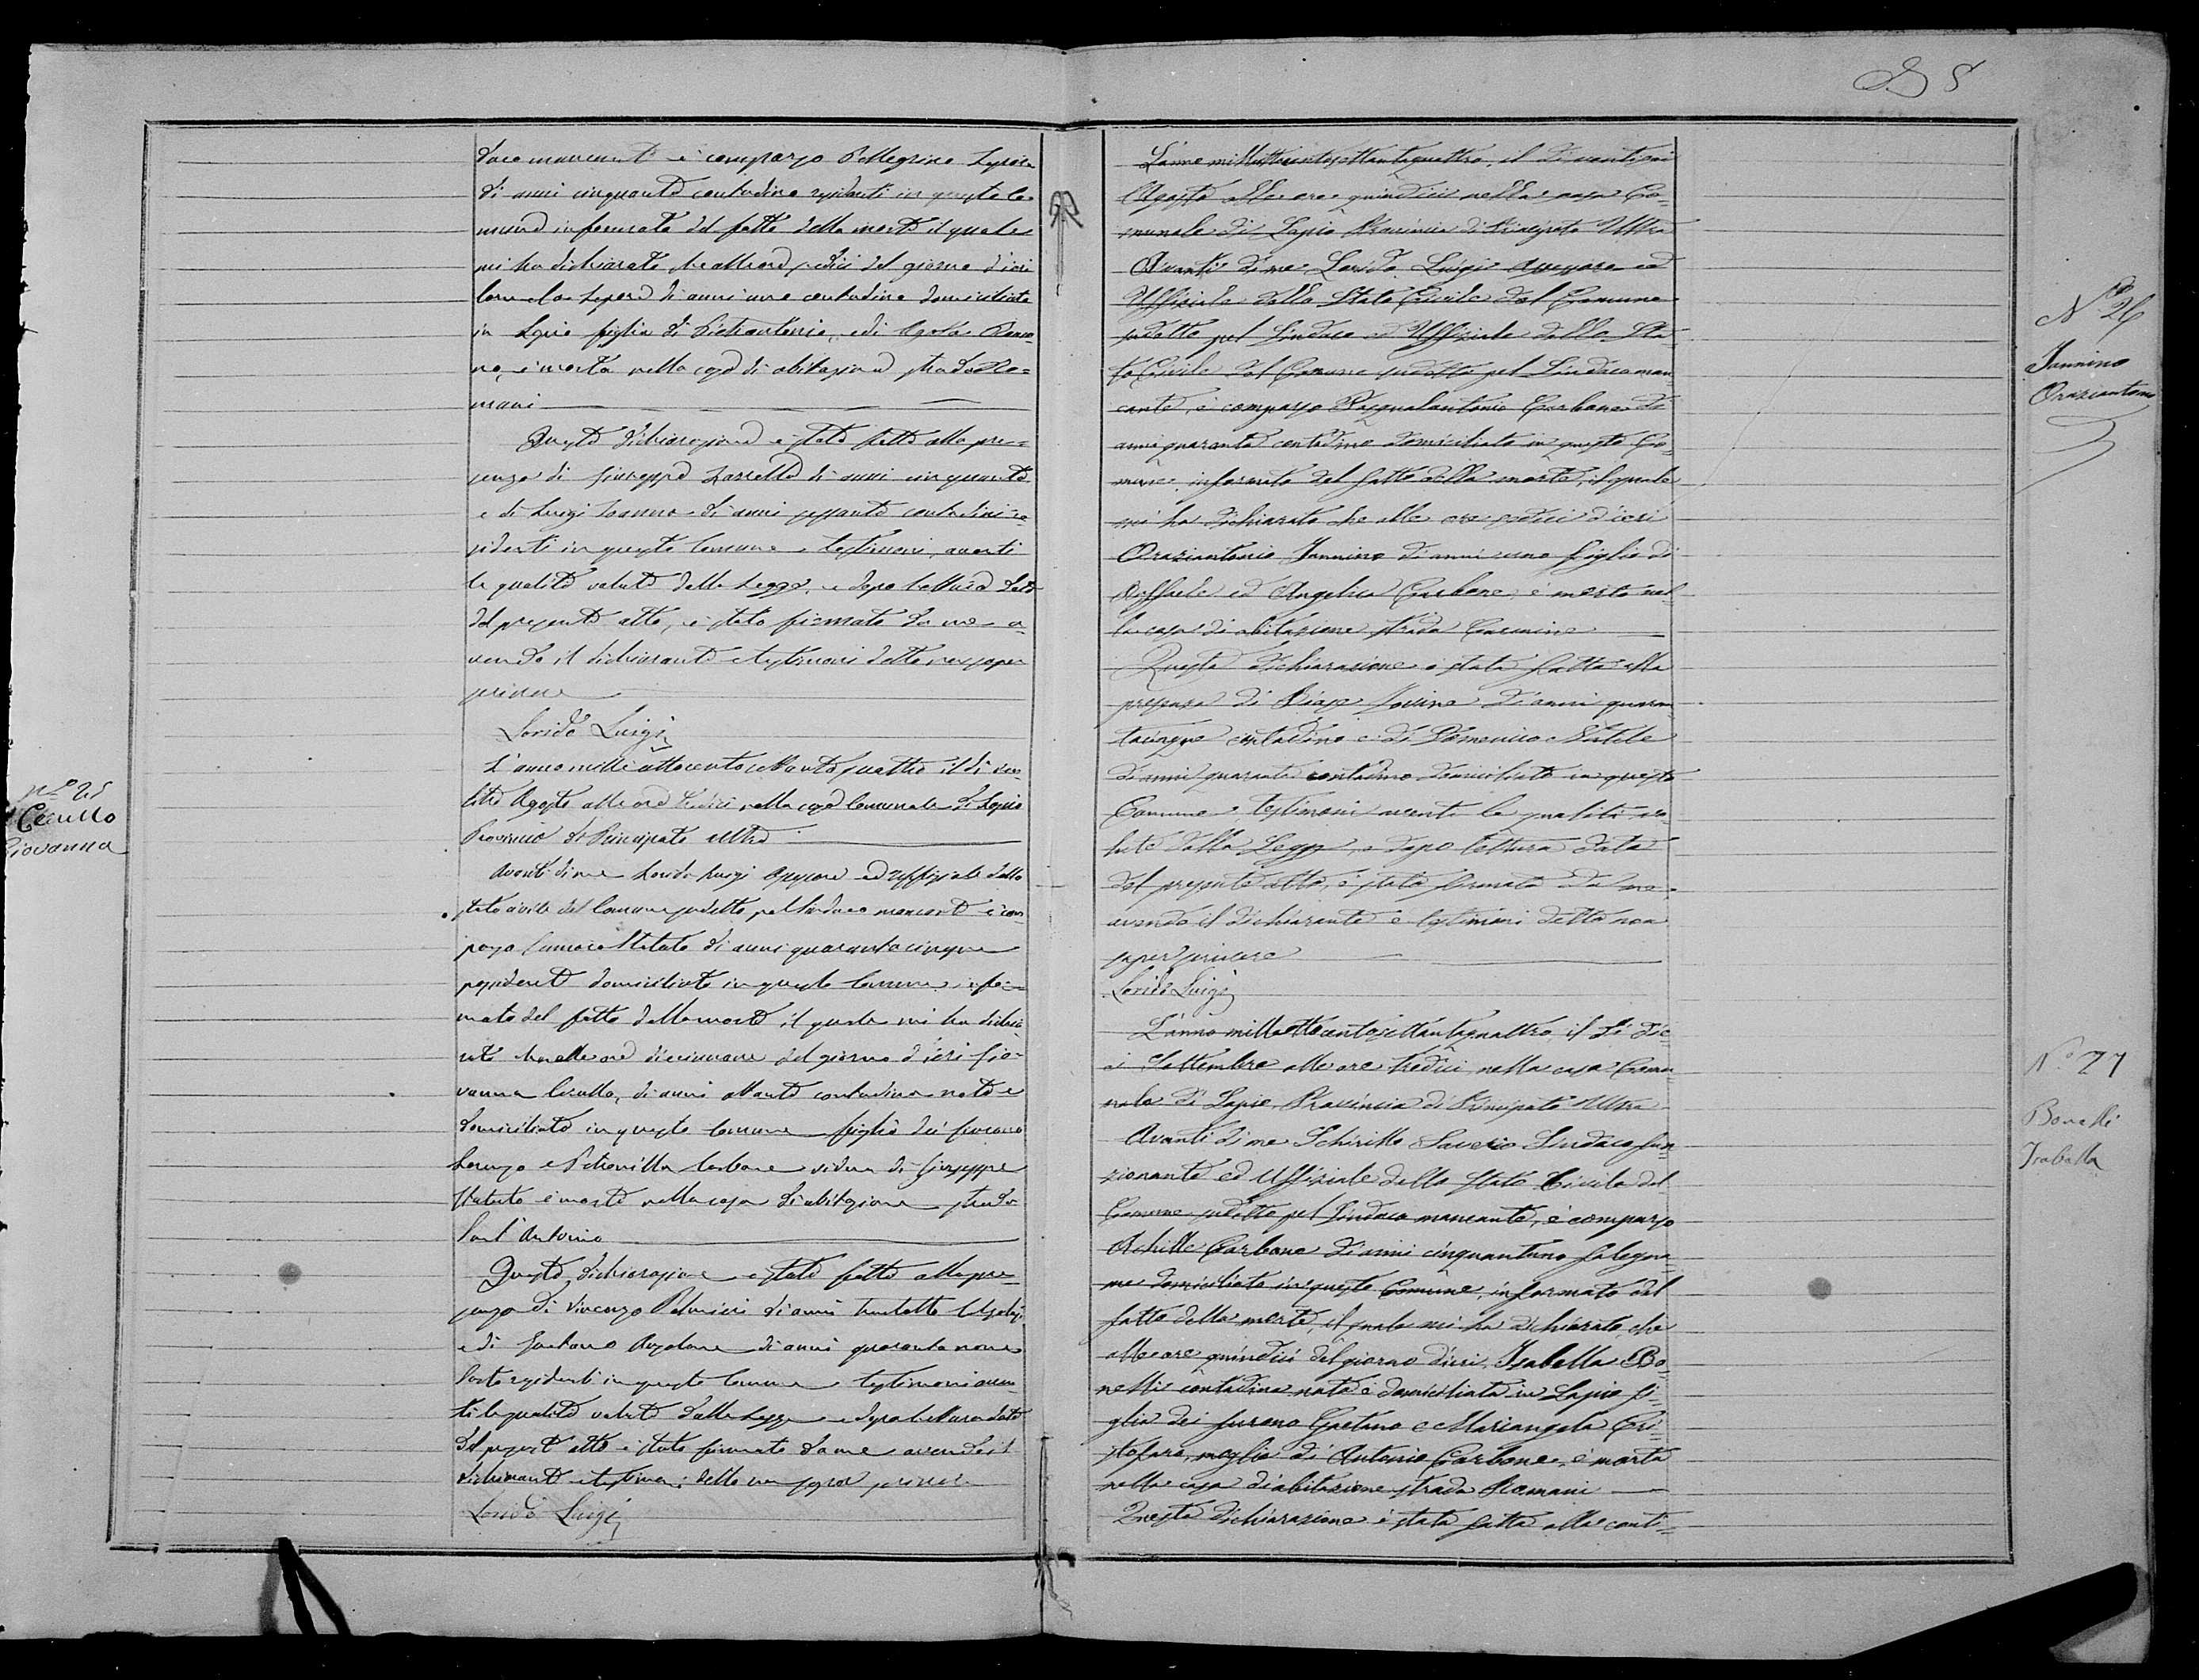 daco mancante è comparso Pellegrino
di anni cinquanta contadino residenti in questo Co-
mune informato del fatto della morte il quale
mi ha dichiarato che alle ore sedici del giorno d'ieri
di anni uno contadina domiciliata
in Lapio figlia di Pietrantonio, e di
no, è morta nella casa di abitazione strada Ro-
mani
Questa dichiarazione è stata fatta alla pre-
senza di Giuseppe di anni cinquanta
e di Luigi di anni sessanta contadini re-
sidenti in questo Comune testimoni, aventi
le qualità volute dalla Legge, e dopo lettura data
del presente atto, è stato firmato da me a-
vendo il dichiarante e testimoni detto non saper
scrivere
Lorido Luigi
N.º 25
Cerullo
Giovanna
L'anno mille ottocento settanta quattro il dì ven-
titre Agosto alle ore tredici nella casa Comunale di Lapio
Provincia di Principato Ultra
Avanti di me Lorido Luigi Assessore ed uffiziale dello
stato civile del Comune sudetto, pel Sindaco mancante è com-
parso Statuto di anni quarantacinque
possidente domiciliato in questo Comune infor-
mato del fatto della morte il quale mi ha dichia-
rato che alle ore diciannove del giorno d'ieri Gio-
vanna Cerullo, di anni ottanta contadina nata e
domiciliata in questo Comune figlia dei furono
Lorenzo e Petronilla Carbone vedova di Giuseppe
Statuto è morta nella casa di abitazione strada
Sant'Antonio
Questa dichiarazione è stata fatta alla pre-
senza di Vincenzo di anni trentotto
e di Gaetano di anni quarantanove
Sarto residenti in questo Comune testimoni aven-
ti le qualità volute dalla Legge e dopo lettura data
del presente atto è stato firmato da me avendo il
dichiarante e testimoni detto non saper scrivere
Lorido Luigi
L'anno milleottocentosettantaquattro, il dì ventisei
Agosto alle ore quindici nella casa Co-
munale di Lapio Provincia di Principato Ultra
Avanti di me Lorido Luigi Assessore ed
Uffiziale dello Stato Civile del Comune
sudetto pel Sindaco ed Uffiziale dello Sta
to Civile del Comune sudetto pel Sindaco man-
cante, è comparso Pasqualantonio Carbone di
anni quaranta contadino domiciliato in questo Co-
mune, informato del fatto della morte, il quale
mi ha dichiarato che alle ore sedici d'ieri
Oraziantonio Jannino di anni uno figlio di
Raffaele ed Angelica Carbone, è morto nel-
la casa di abitazione strada Carmine
Questa dichiarazione è stata fatta alla
presenza di Biase di anni quaran-
tacinque contadino e di Domenico
di anni quaranta contadino domiciliati in questo
Comune, testimoni aventi le qualità vo-
lute dalla Legge, e dopo lettura data
del presente atto, è stato firmato da me,
avendo il dichiarante e testimoni detto non
saper scrivere
Lorido Luigi
L'anno milleottocentosettantaquattro, il dì die-
ci Settembre alle ore tredici nella casa Comu-
nale di Lapio Provincia di Principato Ultra
Avanti di me Schirillo Saverio Sindaco fun-
zionante ed Uffiziale dello Stato Civile del
Comune sudetto pel Sindaco mancante, è comparso
Achille Carbone di anni cinquantuno falegna-
me domiciliato in questo Comune, informato del
fatto della morte, il quale mi ha dichiarato, che
alle ore quindici del giorno d'ieri, Isabella Bo-
nelli contadina nata e domiciliata in Lapio fi-
glia dei furono Gaetano e Mariangela Cri-
stofaro, moglie di Antonio Carbone, è morta
nella casa d'abitazione strada Romani
Questa dichiarazione è stata fatta alla conti-
N.º 26
Jannino
Oraziantonio
N.º 27
Bonelli
Isabella